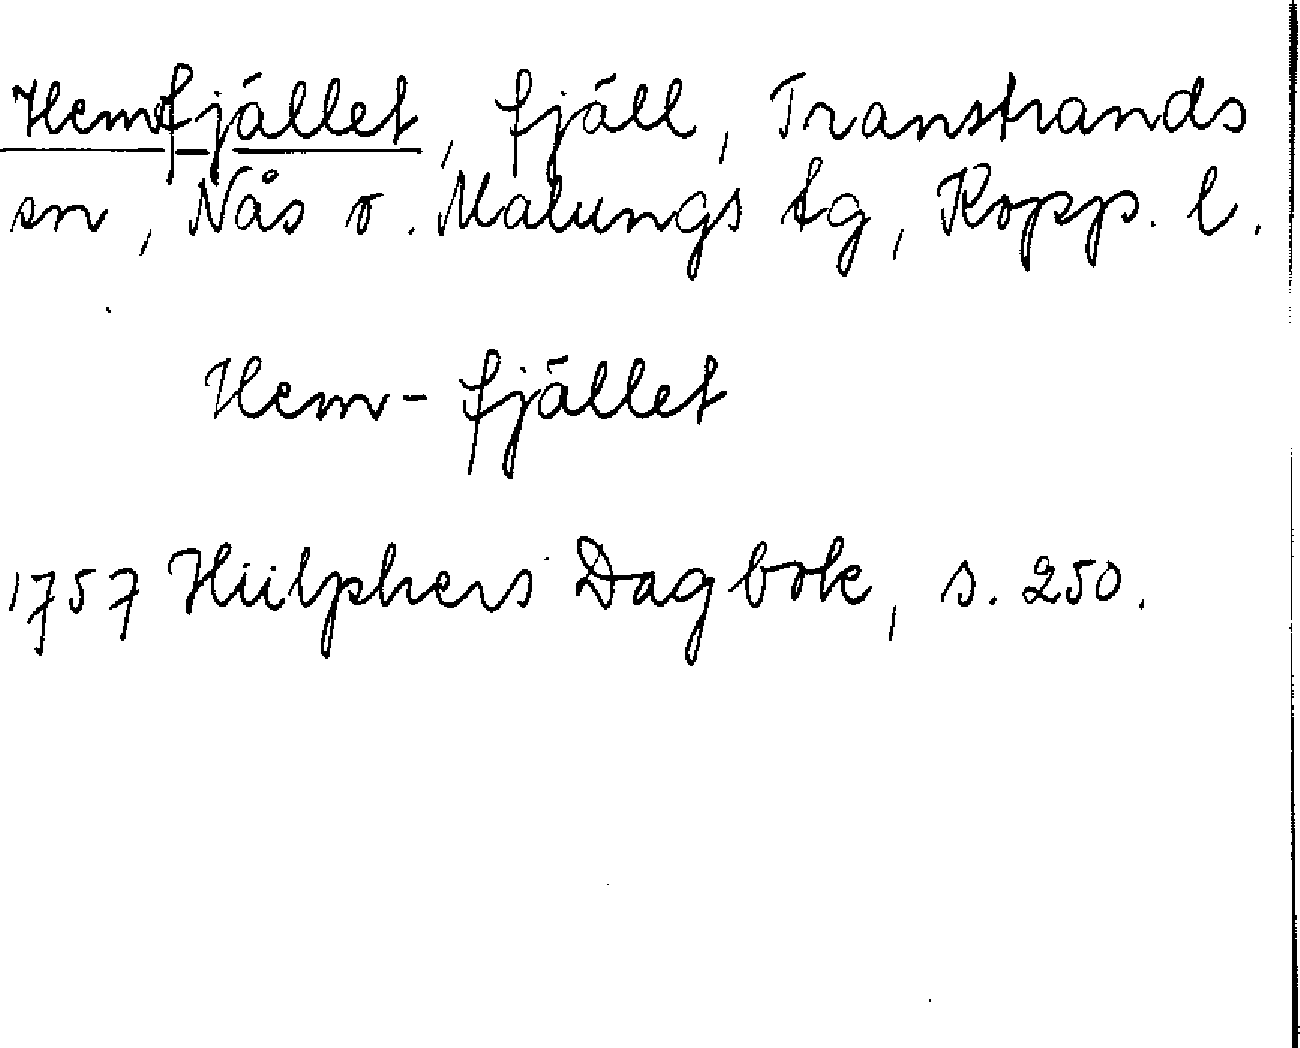 Hemfjället, fjäll, Transtrands
sn, Nås o. Malungs tg, Kopp. l.
Hem-fjället
1757 Hülphers Dagbok, s. 250.